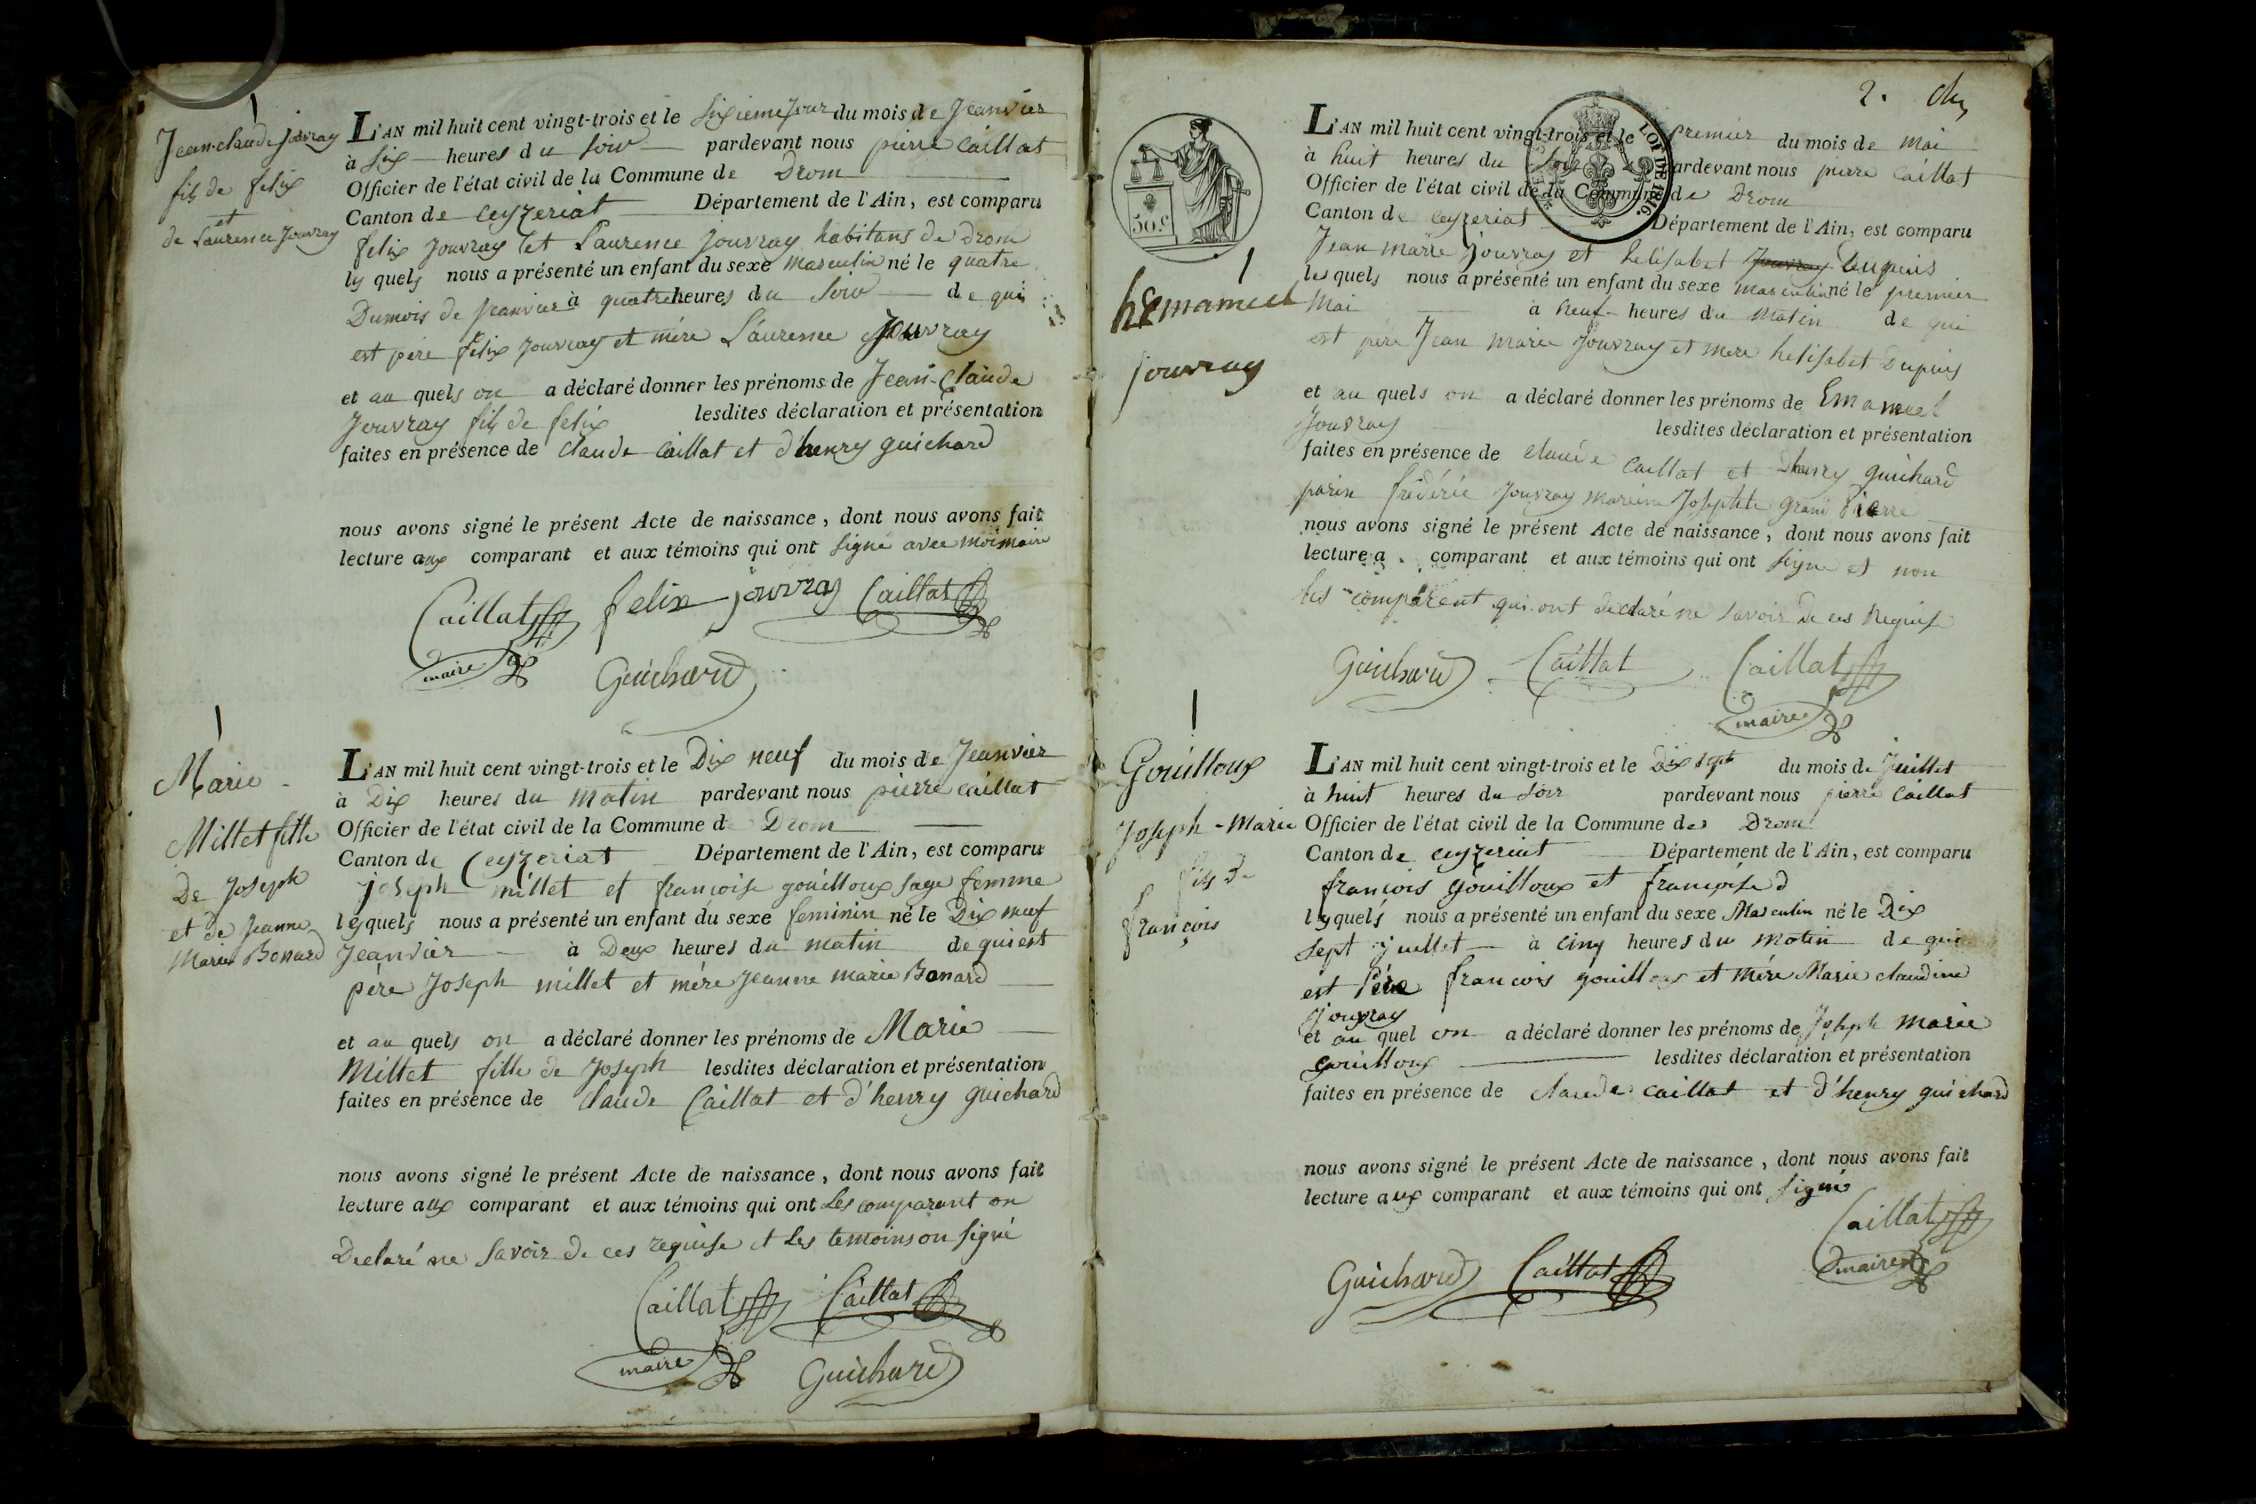 Jean-claude jouvray
fils de felix
et
de Laurence Jouvray
L'AN mil huit cent vingt-trois et le sixieme jour du mois de Jeanvier
à six heures du soir pardevant nous pierre Caillat
Officier de l'état civil de la Commune de Drom
Canton de Ceyzeriat Département de l'Ain, est comparu
felix Jouvray et Laurence Jouvray habitans de Drom
lesquels nous a présenté un enfant du sexe masculin né le quatre
Du mois de Jeanvier à quatre heures du soir de qui
est pere felix Jouvray et mére Laurence Jouvray
et au quels on a déclaré donner les prénoms de Jean-Claude
Jouvray fils de felix lesdites déclaration et présentation
faites en présence de Claude Caillat et d'henry guichard
nous avons signé le présent Acte de naissance, dont nous avons fait
lecture aux comparant et aux témoins qui ont signé avec moi maire
Caillat felix jouvray Caillat
maire Guichard
Marie
Millet fille
De Joseph
et de Jeanne
Marie Bonard
L'AN mil huit cent vingt-trois et le Dix neuf du mois de Jeanvier
à Dix heures du matin pardevant nous pierre Caillat
Officier de l'état civil de la Commune de Drom
Canton de Ceyzeriat Département de l'Ain, est comparu
joseph millet et françoise gouilloux sage femme
lesquels nous a présenté un enfant du sexe feminin né le Dix neuf
Jeanvier à Deux heures du matin de qui est
père Joseph millet et mére Jeanne marie Bonard
et au quels on a déclaré donner les prénoms de Marie
Millet fille de Joseph lesdites déclaration et présentation
faites en présence de Claude Caillat et d'henry guichard
nous avons signé le présent Acte de naissance, dont nous avons fait
lecture aux comparant et aux témoins qui ont Les comparant on
Declaré ne savoir de ces requise et les temoins on signé
Caillat Caillat
maire Guichard
2.
50 c
LOI DE 1816.
hEmamuel
jouvray
L'AN mil huit cent vingt-trois et le premier du mois de mai
à huit heures du soir pardevant nous pierre Caillat
Officier de l'état civil de la Commune de Drom
Canton de Ceyzeriat Département de l'Ain, est comparu
Jean marie jouvray et helisabet Jouvray Dupuis
lesquels nous a présenté un enfant du sexe masculin né le premier
Mai à neuf heures du matin de qui
est pere Jean marie Jouvray et mere helisabet Dupuis
et au quels on a déclaré donner les prénoms de Emamuel
Jouvray lesdites déclaration et présentation
faites en présence de claude Caillat et Dhenry guichard
parin frédéric Jouvray mareine Josephte grand Pierre
nous avons signé le présent Acte de naissance, dont nous avons fait
lecture a comparant et aux témoins qui ont signé et non
les comparent qui ont déclaré ne savoir de ces Requise
Guichard Caillat Caillat
maire
Gouilloux
Joseph-Marie
fils de
françois
L'AN mil huit cent vingt-trois et le Dix sept du mois de Juillet
à huit heures du soir pardevant nous pierre Caillat
Officier de l'état civil de la Commune de Drom
Canton de Ceyzeriat Département de l'Ain, est comparu
françois gouilloux et françoise d
lesquels nous a présenté un enfant du sexe Masculin né le Dix
sept juillet à cinq heures du matin de qui
est Pére francois gouilloux et mére Marie claudine
Jouvray
et au quel on a déclaré donner les prénoms de Joseph marie
gouilloux lesdites déclaration et présentation
faites en présence de claude caillat et d'henry guichard
nous avons signé le présent Acte de naissance, dont nous avons fait
lecture aux comparant et aux témoins qui ont signé
Caillat
Guichard Caillat maire